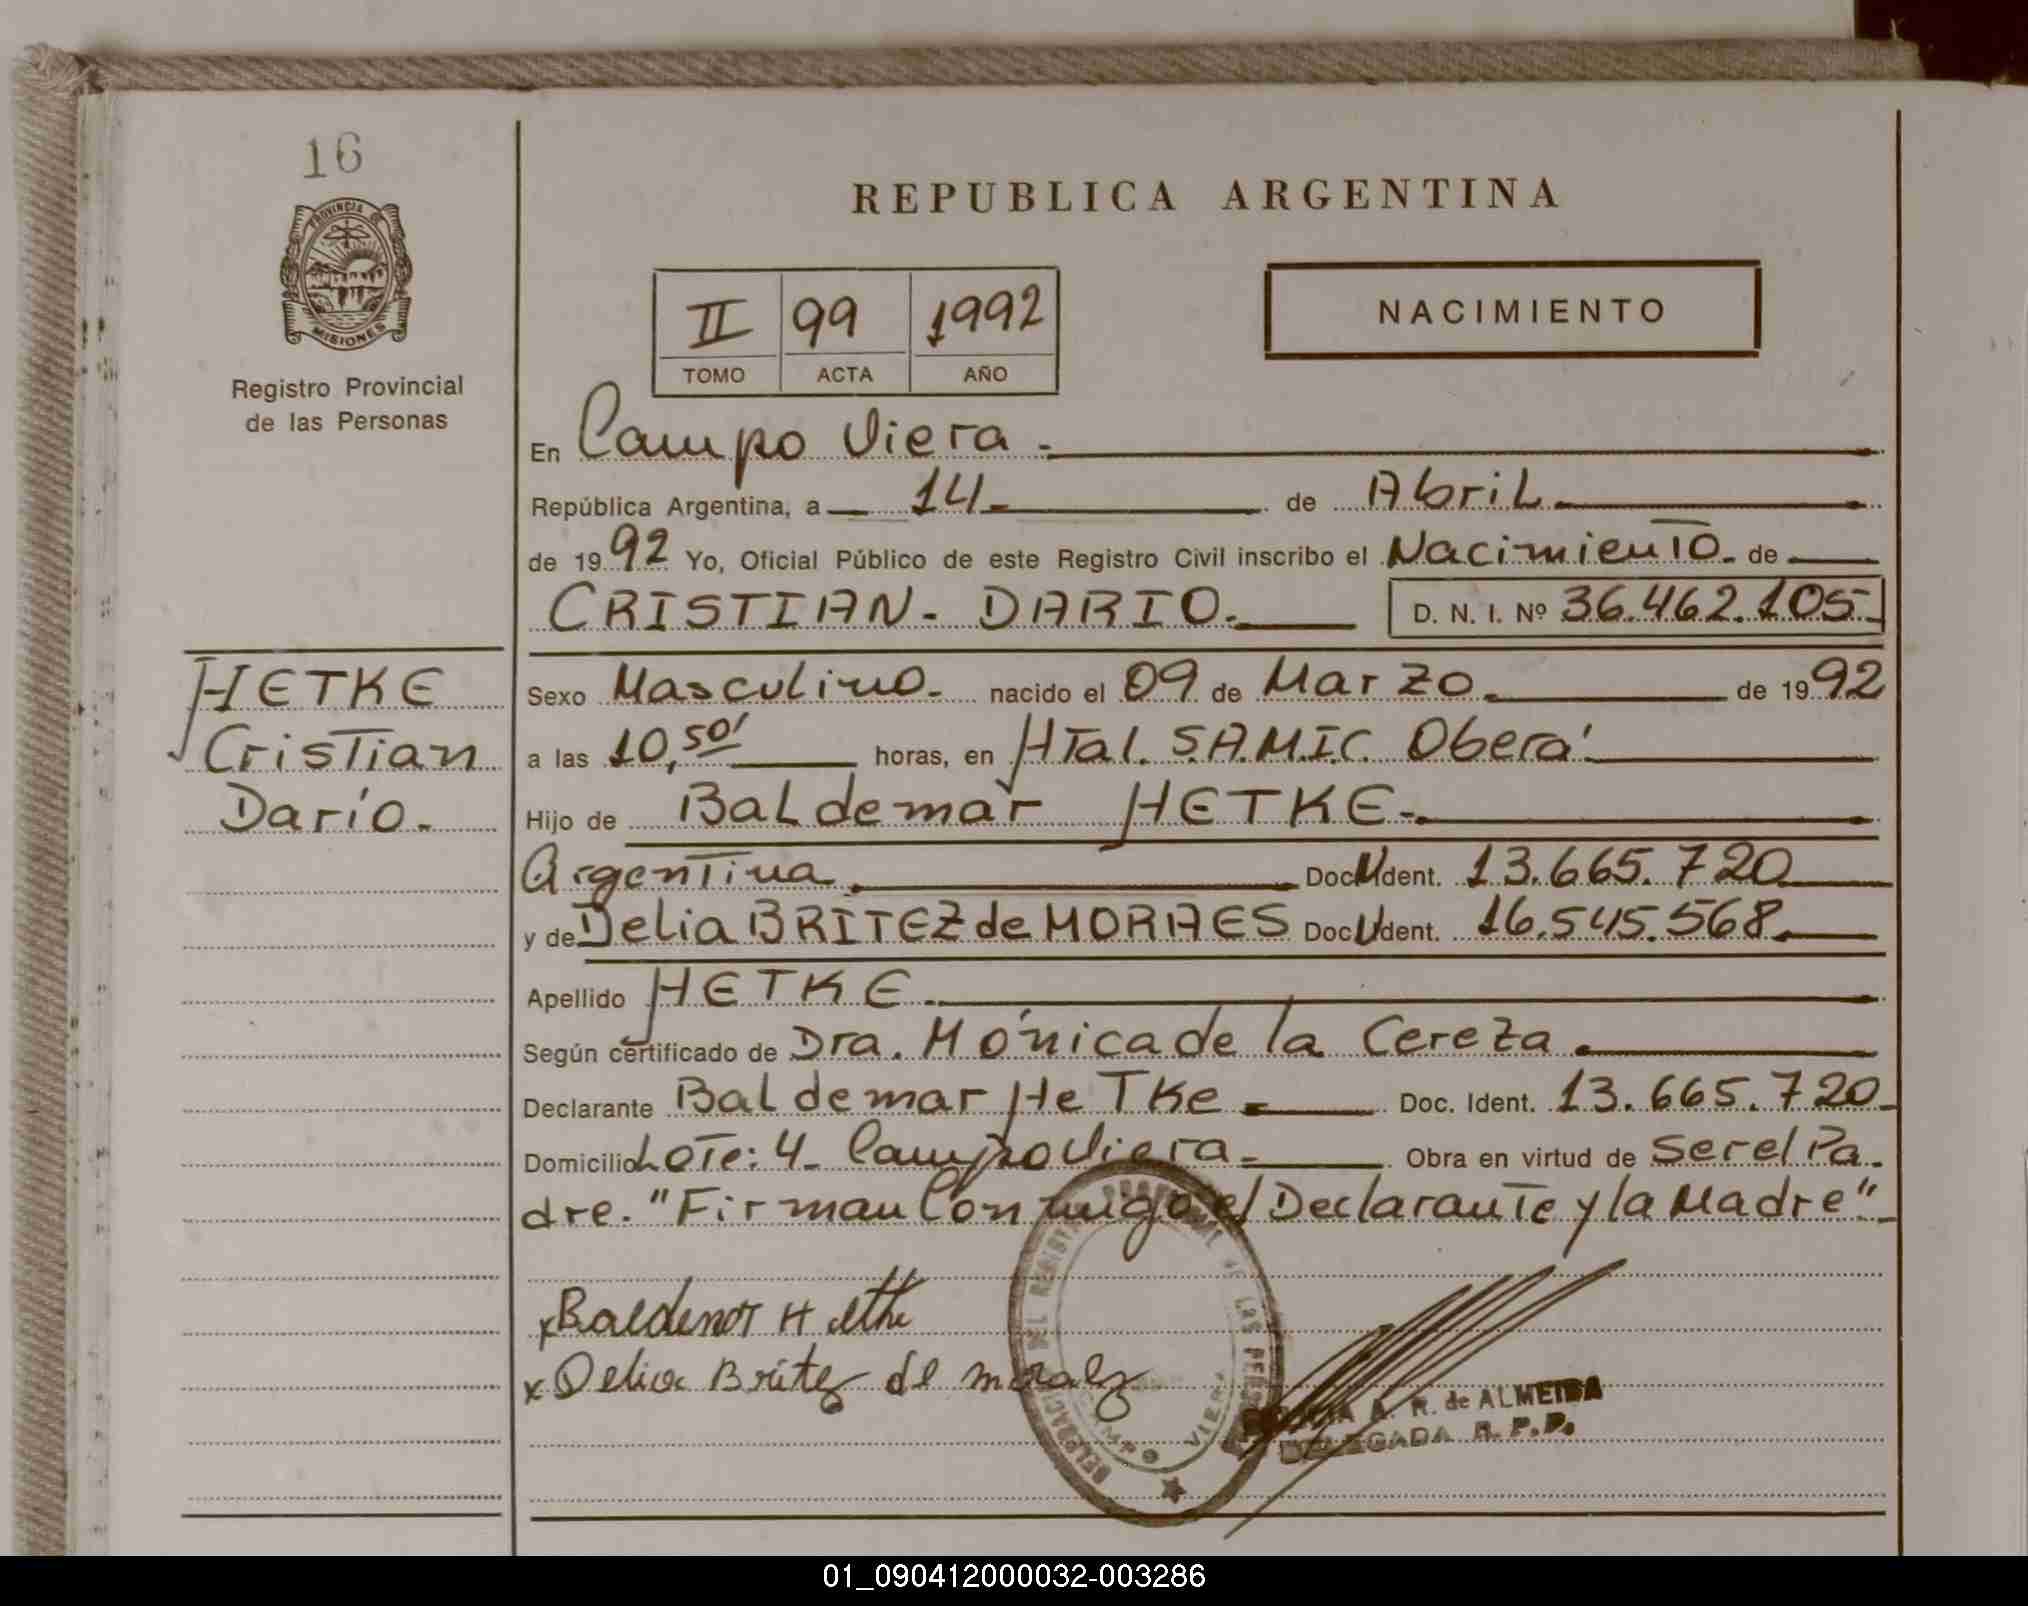 16
PROVINCIA DE
MISIONES
Registro Provincial
de las Personas
REPUBLICA ARGENTINA
II 99 1992
TOMO ACTA AÑO
NACIMIENTO
En Campo Viera.
República Argentina, a 14 de Abril
de 1992 Yo, Oficial Público de este Registro Civil inscribo el Nacimiento de
CRISTIAN - DARIO. D. N. I. Nº 36.462.105
HETKE
Cristian
Darío.
Sexo Masculino. nacido el 09 de Marzo de 1992
a las 10,50' horas, en HTal. S.A.M.I.C. Oberá
Hijo de Baldemar HETKE
Argentina Doc. Ident. 13.665.720
y de Delia BRITEZ de MORAES Doc. Ident. 16.545.568
Apellido HETKE
Según certificado de Dra. Mónica de la Cereza.
Declarante Baldemar HeTKe Doc. Ident. 13.665.720
Domicilio LoTe: 4 Campo Viera Obra en virtud de ser el Pa-
dre. "Firman Conmigo el Declarante y la Madre"
x Baldemar Hetke
x Delia Britez de moraez
A. R. de ALMEIDA
DELEGADA R. P. P.
01_090412000032-003286